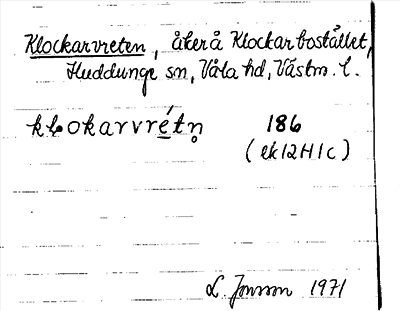 Klockarvreten, åker å Klockarbostället,
Huddunge sn, Våla hd, Västm. l.
klokarvrétn̥ 186
(ek 12H1c)
L. Jonsson 1971